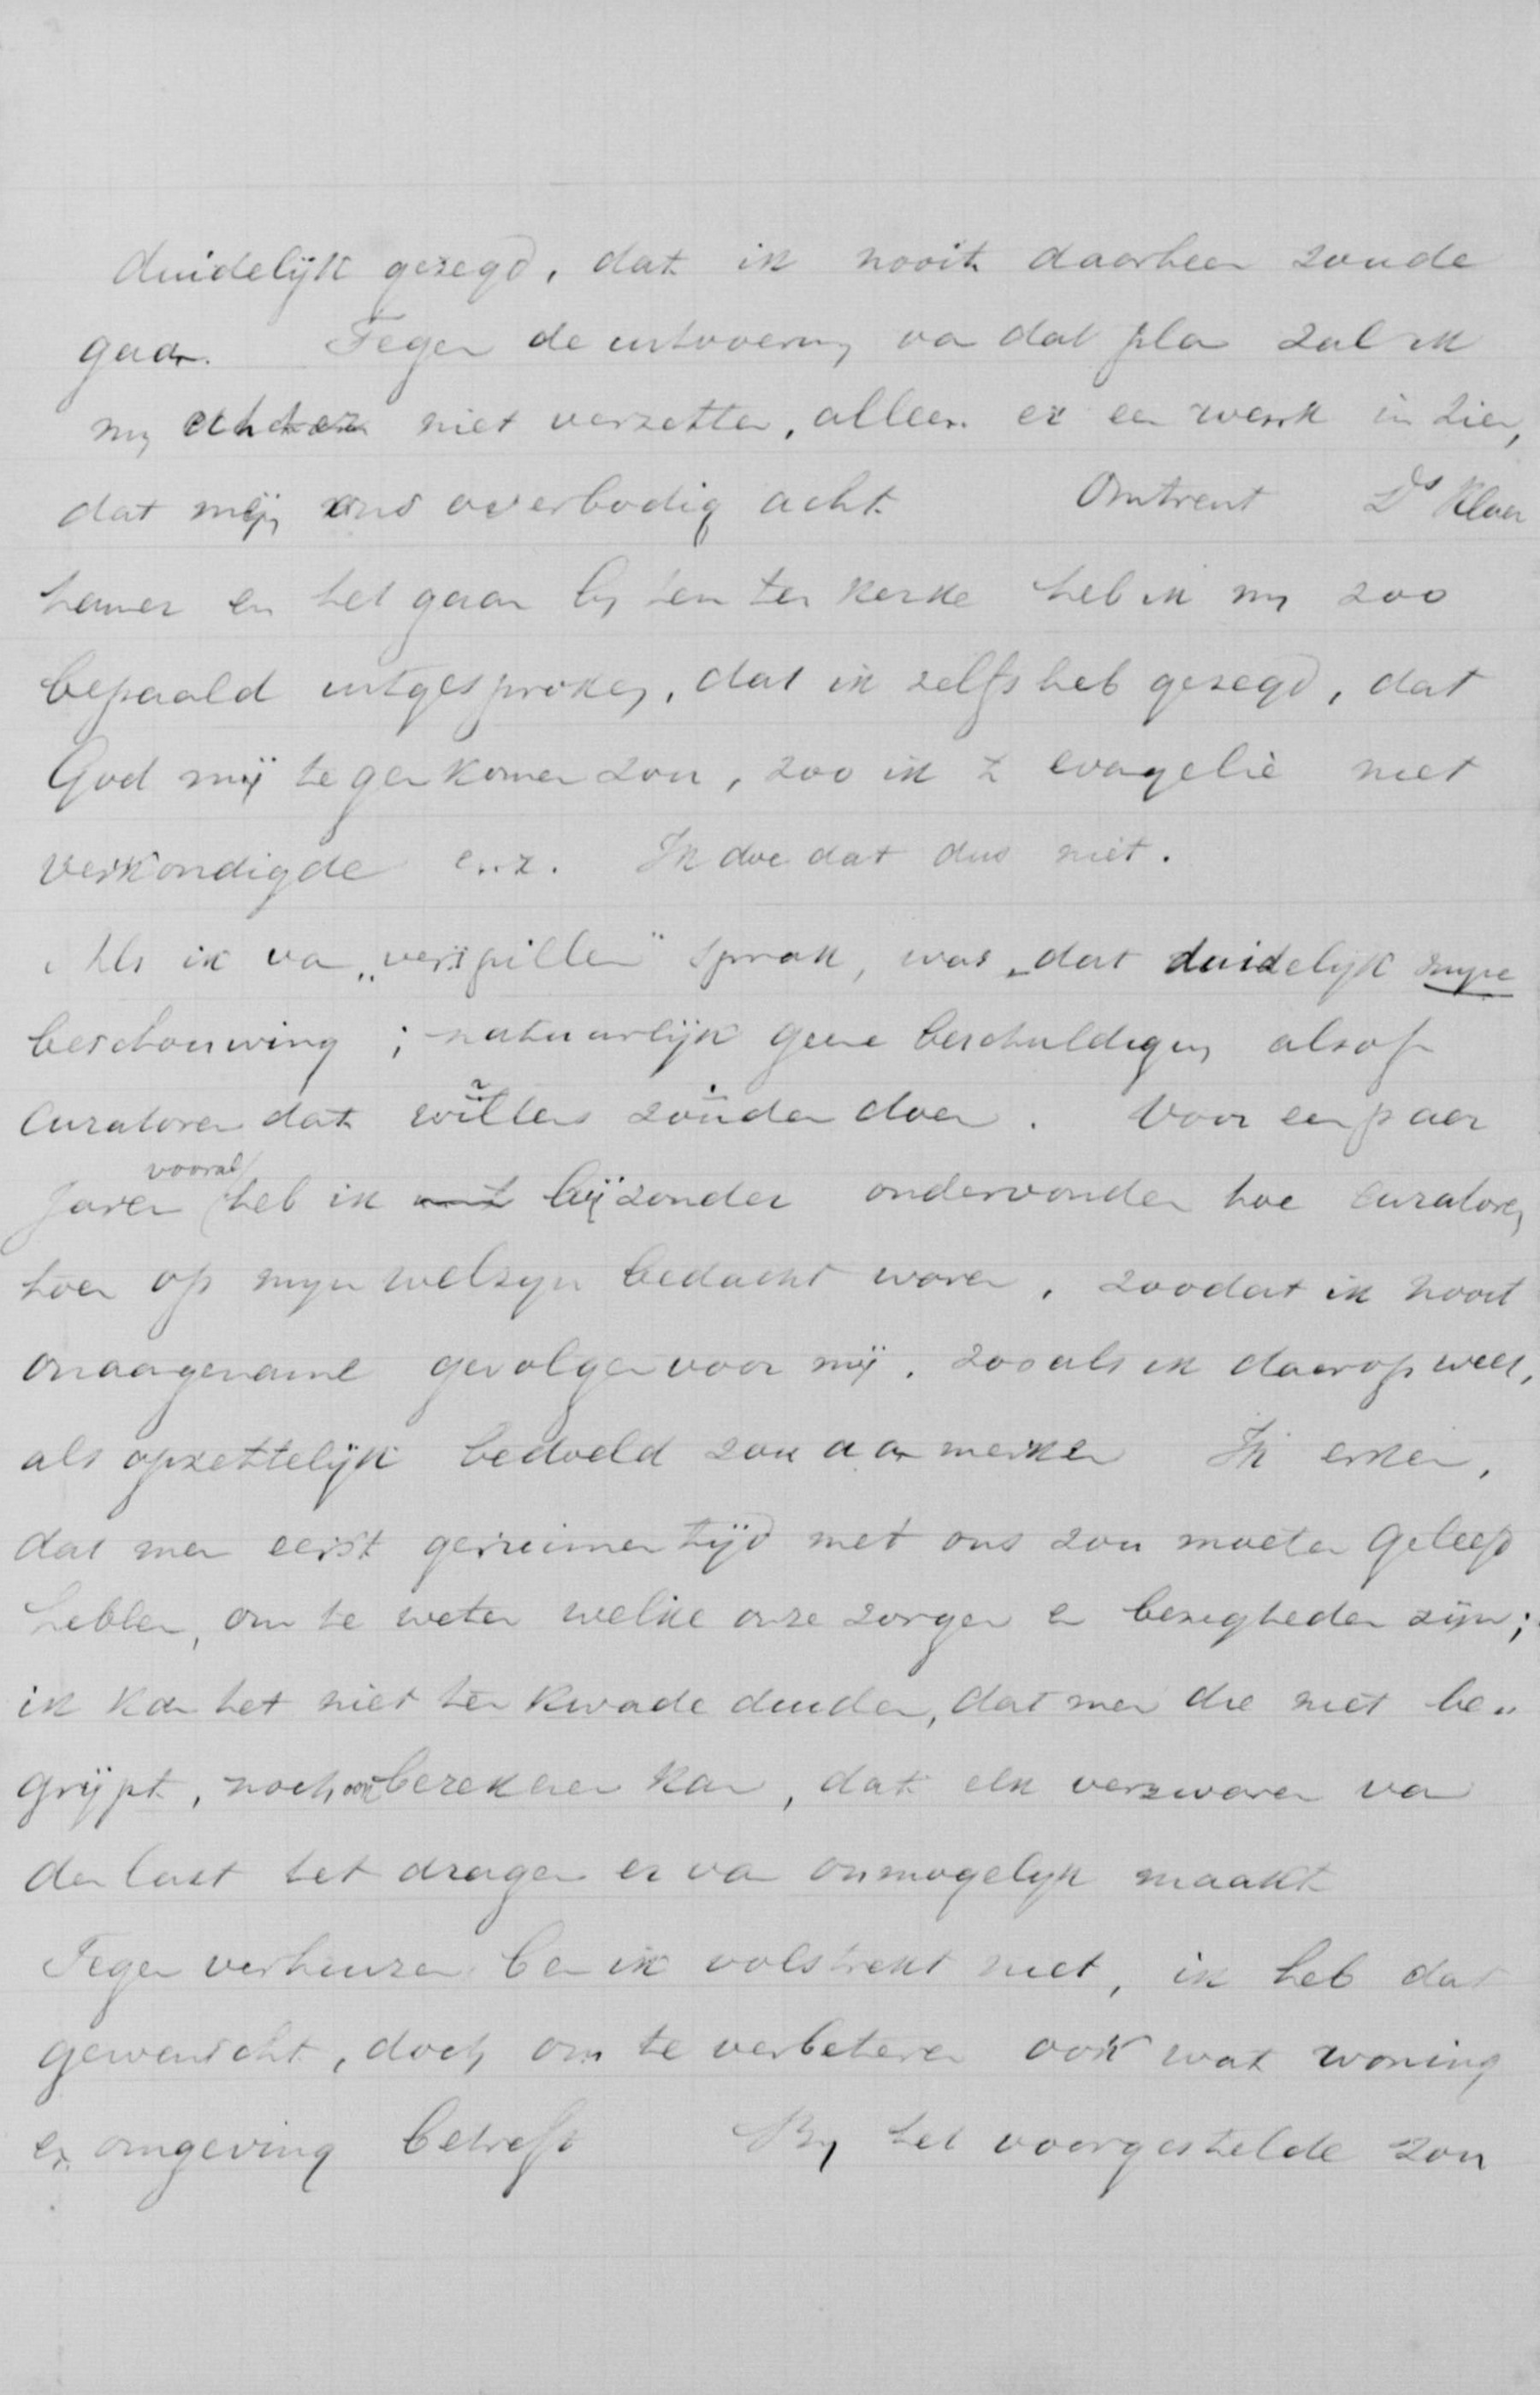 duidelijk gezegd, dat ik nooit daarheen zoude
gaan. Tegen de uitvoering van dat plan zal ik
my echter niet verzetten, alleen er een wenk in zien,
dat men ons overbodig acht. Omtrent Ds Klaar
hamer en het gaan by hen ter kerke heb ik my zoo
bepaald uitgesproken, dat ik zelfs heb gezegd, dat
God mij tegenkomen zou, zoo ik t evangelie niet
verkondigde enz. Ik doe dat dus niet.
Als ik van „verspillen" sprak, was dat duidelijk myne
beschouwing; natuurlijk geene beschuldiging alsof
Curatoren dat willens zouden doen. Voor een paar
jaren vooral heb ik bijzonder ondervonden hoe Curatoren
hoen op myn welzyn bedacht waren, zoodat ik nooit
onaangename gevolgen voor mij, zooals ik daarop wees,
als opzettelijk bedoeld zou aanmerken. Ik erken,
dat men eerst geruimen tijd met ons zou moeten geleefd
hebben, om te weten welke onze zorgen en bezigheden zijn;
ik kan het niet ten kwade duiden, dat men die niet be„
grijpt, noch ook berekenen kan, dat elk verzwaren van
den last het dragen er van onmogelyk maakt
Tegen verhuizen ben ik volstrekt niet, ik heb dat
gewenscht, doch om te verbeteren ook wat woning
en omgeving betreft By het voorgestelde zou